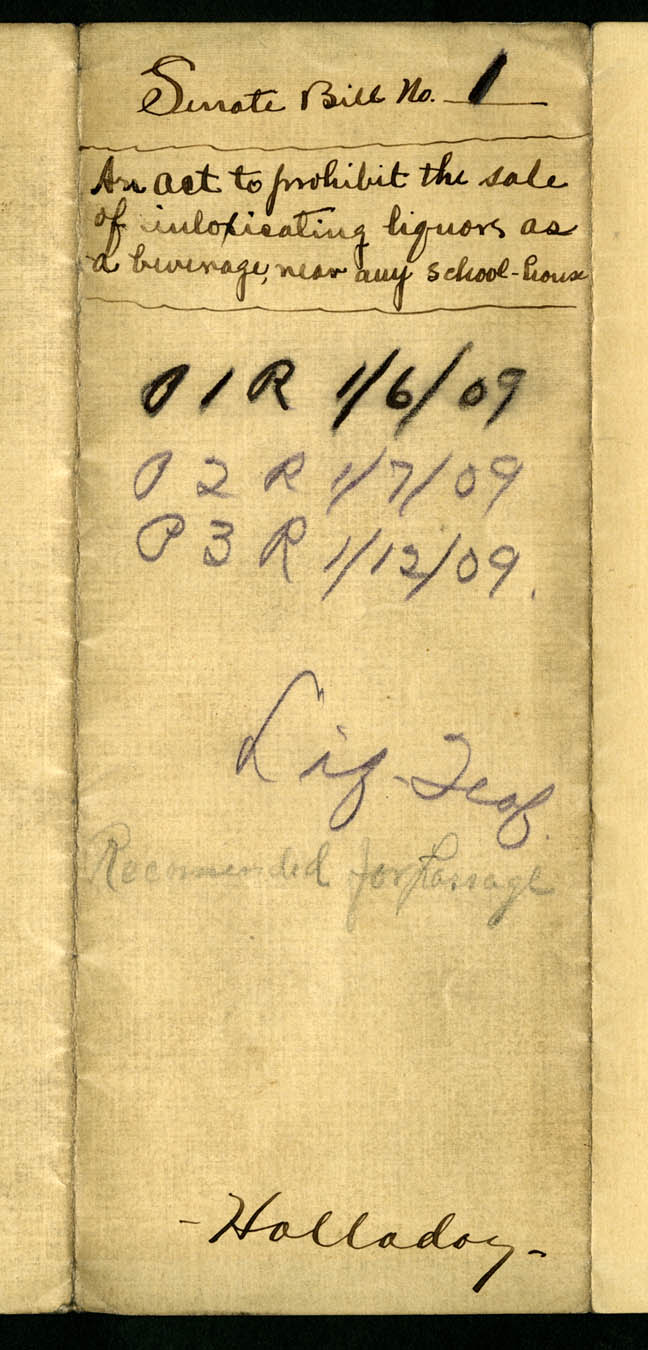 Senate Bill No. 1
An act to prohibit the sale
of intoxicating liquors as
a beverage, near any school-house
P 1 R 1/6/09
P 2 R 1/7/09
P 3 R 1/12/09.
Liq. Traf.
Recommended for Passage
- Holladay -